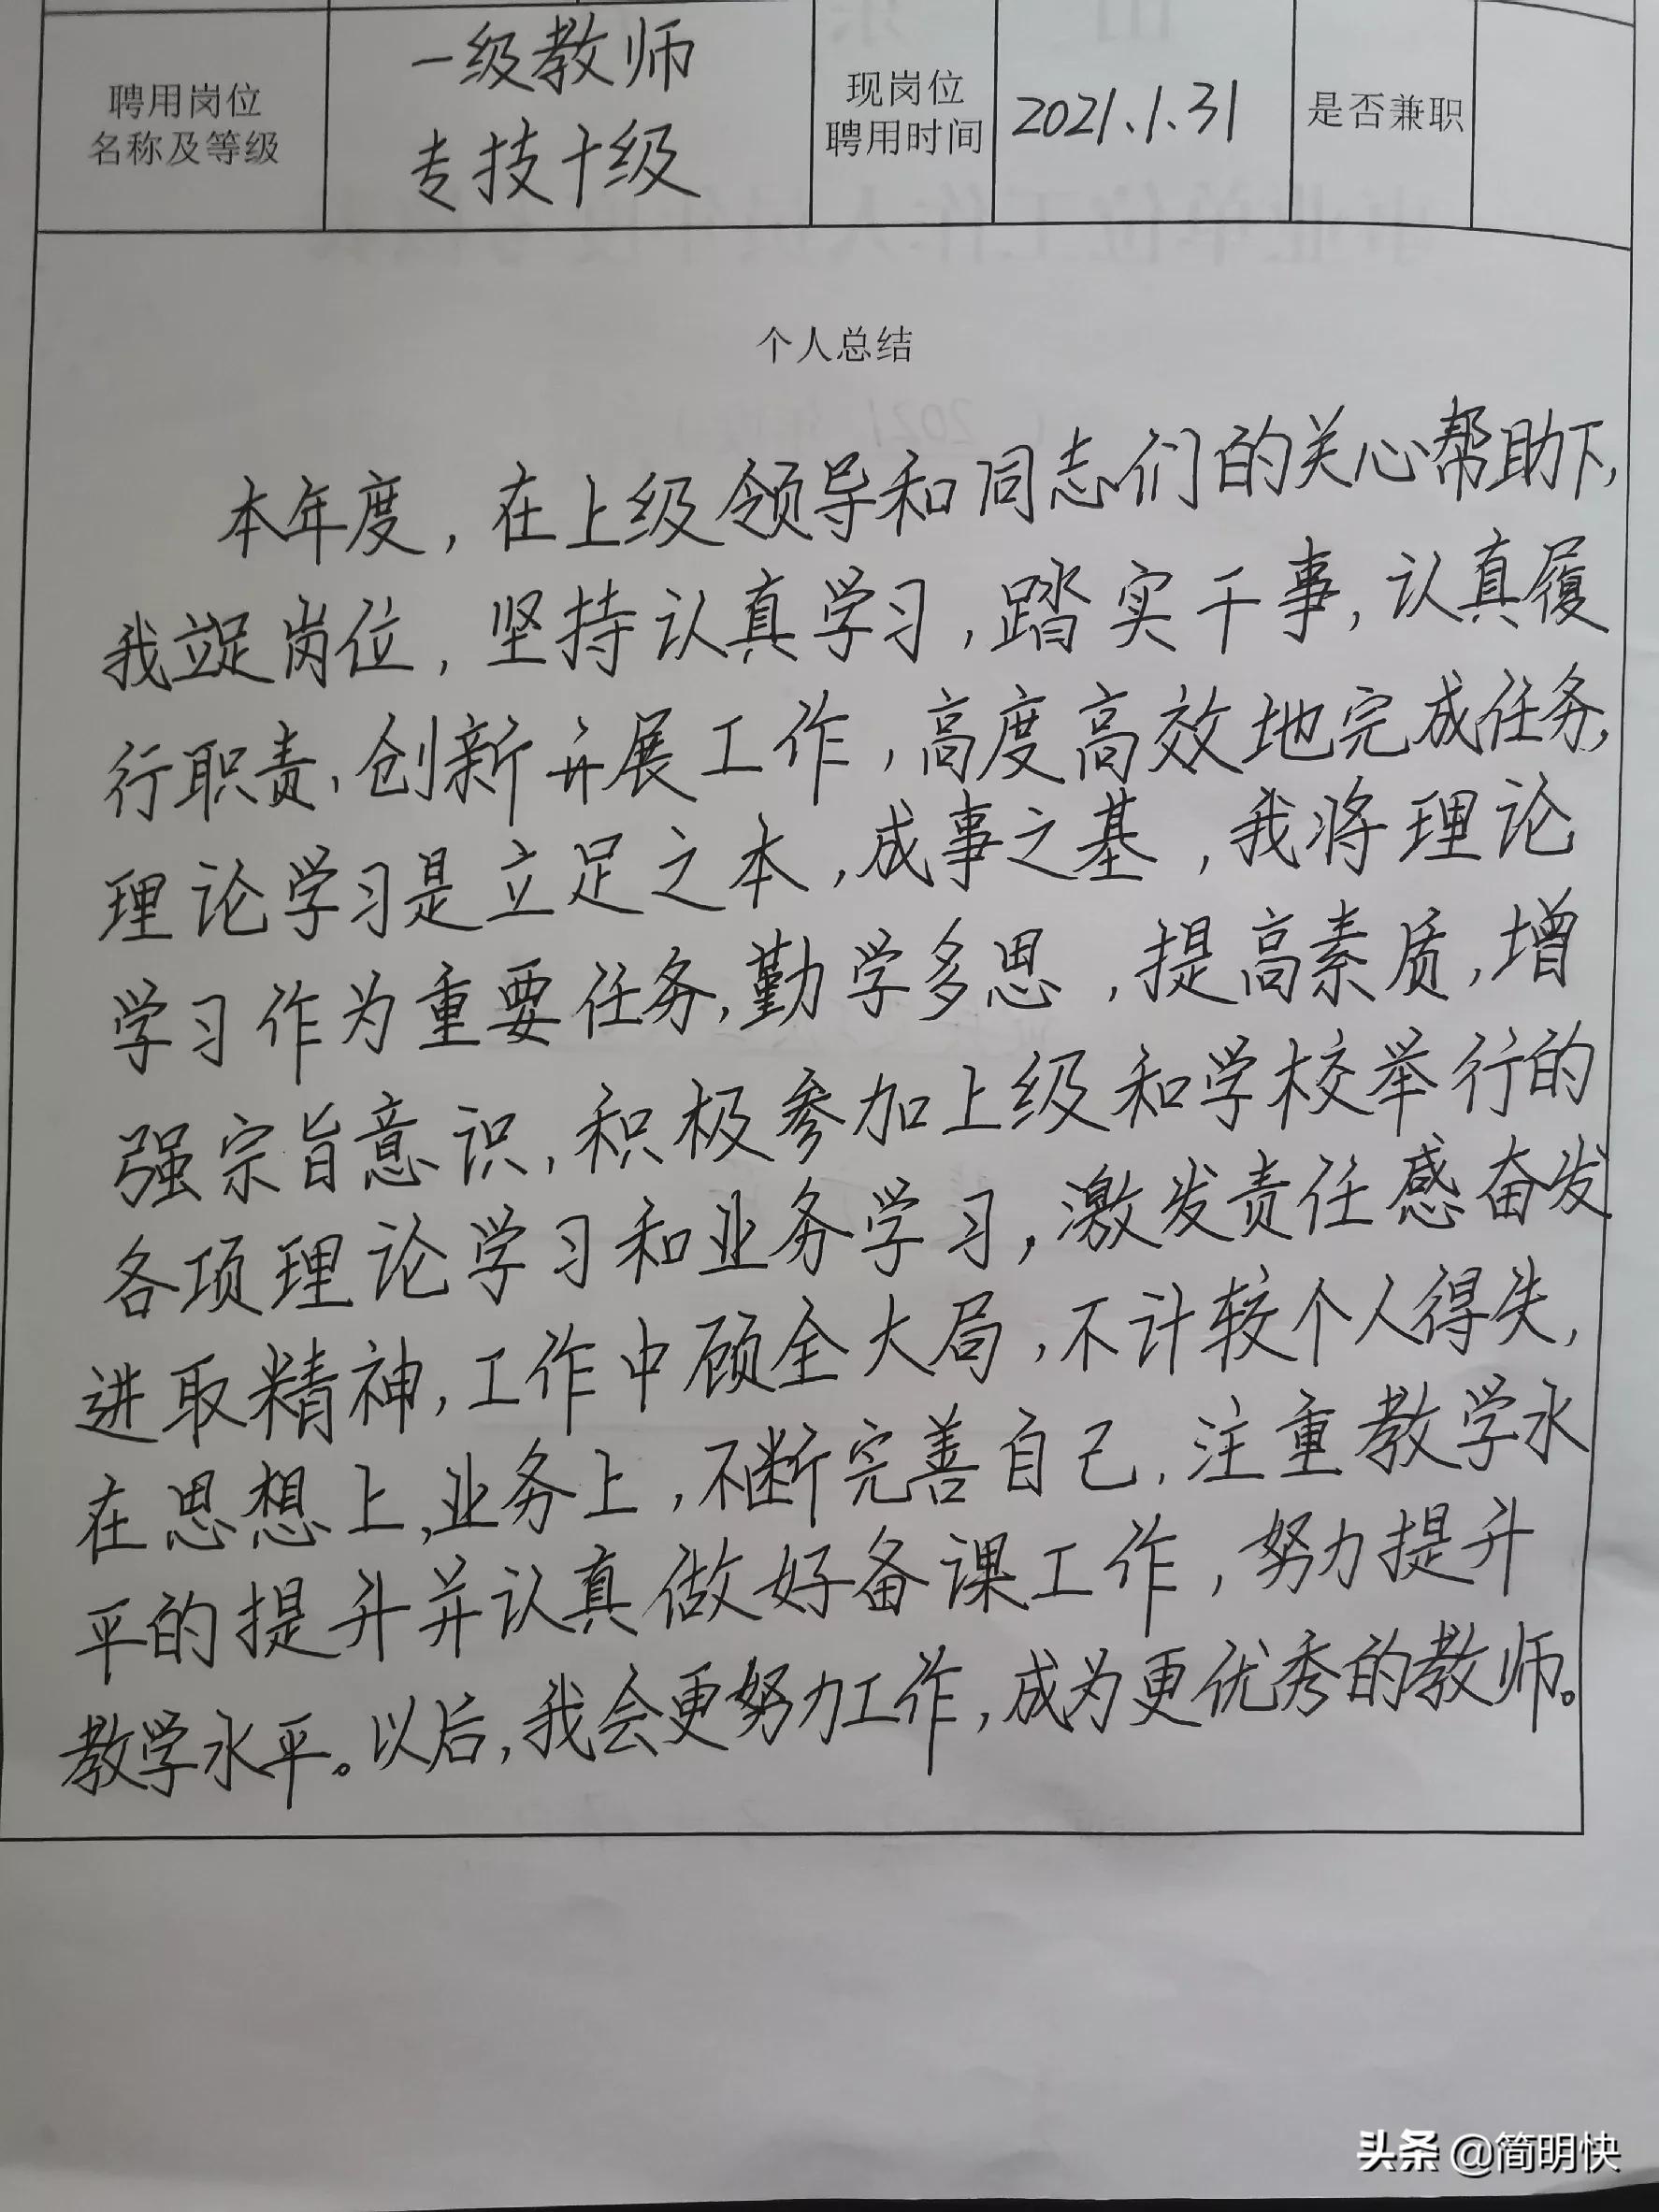 聘用岗位
名称及等级
一级教师
专技十级
现岗位
聘用时间
2021.1.31
是否兼职
个人总结
本年度，在上级领导和同志们的关心帮助下，
我立足岗位，坚持认真学习，踏实干事，认真履
行职责、创新开展工作，高度高效地完成任务，
理论学习是立足之本，成事之基，我将理论
学习作为重要任务，勤学多思，提高素质，增
强宗旨意识，积极参加上级和学校举行的
各项理论学习和业务学习，激发责任感奋发
进取精神，工作中顾全大局，不计较个人得失，
在思想上、业务上，不断完善自己，注重教学水
平的提升并认真做好备课工作，努力提升
教学水平。以后，我会更努力工作，成为更优秀的教师。
头条 @简明快